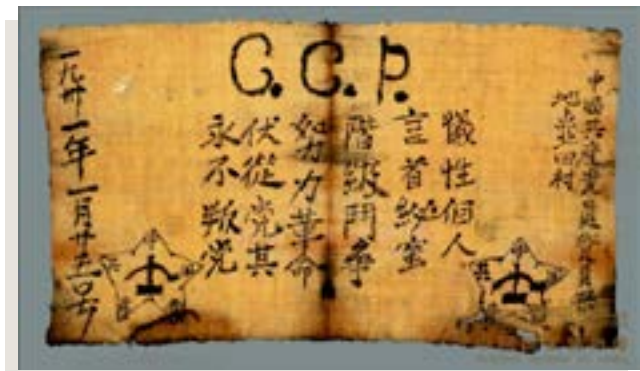 C.C.P.
中國共產黨員
地點北田村
犧性個人
言首秘蜜
階級鬥爭
努力革命
伏從党其
永不叛党
一九卅一年一月廿五
中
中